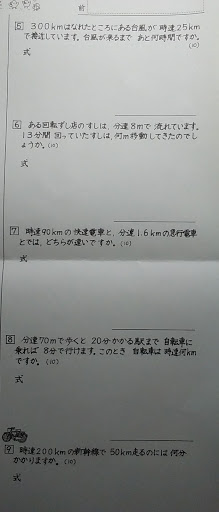 前
5 300kmはなれたところにある台風が 時速25km
で接近しています。台風が来るまで あと何時間ですか。
(10)
式
6 ある回転ずし店のすしは、分速8mで 流れています。
13分間 回っていたすしは、何m移動してきたのでし
ょうか。(10)
式
7 時速90kmの快速電車と、分速1.6kmの急行電車
とでは、どちらが速いですか。(10)
式
8 分速70mで歩くと 20分かかる駅まで 自転車に
乗れば 8分で行けます。このとき 自転車は 時速何km
ですか。(10)
式
9 時速200kmの新幹線で 50km走るのには 何分
かかりますか。(10)
式